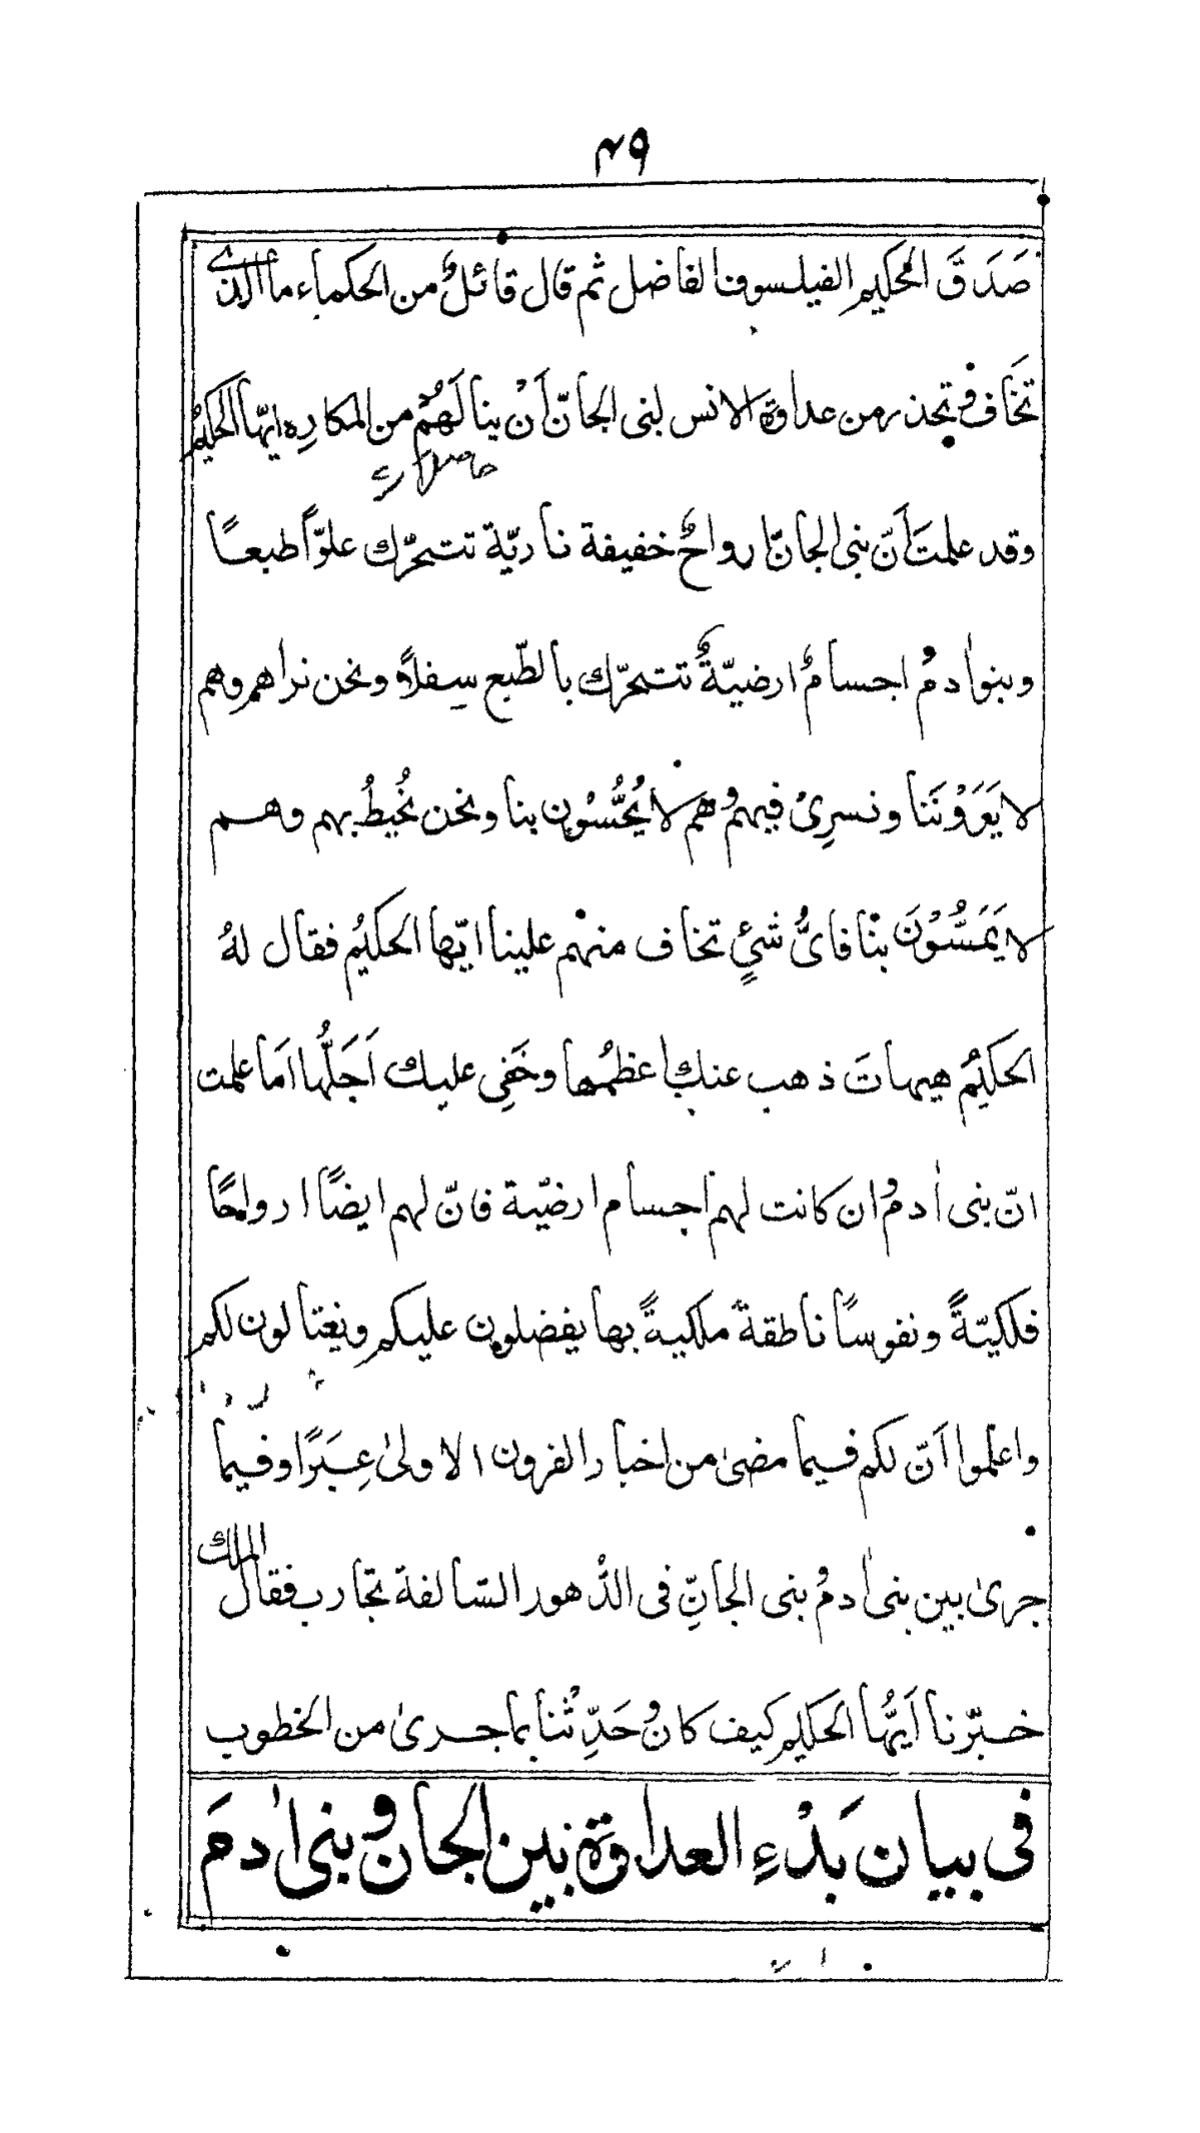 ۴۹
صَدَقَ الحكيم الفيلسوف الفاضل ثم قال قائلٌ من الحكماء ما الذى
تَخَاف وتحذر من عداوة الانس لبنى الجانّ أنْ ينالَهُمْ من المكارِه ايّها الحكيمُ
وقد علمتَ أَنّ بنى الجانّ ارواحٌ خفيفة ناريّة تتحرّك علوًّا طبعًا
وبنو اٰدمُ اجسامٌ ارضيّةٌ تتحرّك بالطّبع سِفلاً ونحن نراهم وهم
لا يَرَوْنَنا ونسرِىْ فيهم وهم لا يُحُسُّوْن بنا ونحن نُحِيطُ بهم وهم
لا يَمَسُّوْنَ بنا فاىُّ شئٍ تخاف منهم علينا ايّها الحكيمُ فقال لهُ
الحكيمُ هيهاتَ ذهب عنك اعظمُها وخَفِى عليك اَجَلُّها اَمَا علمت
انّ بنى اٰدمُ وان كانت لهم اجسام ارضيّة فانّ لهم ايضًا ارواحًا
فلكيّةً ونفوسًا ناطقة ملكيةً بها يفضلون عليكم ويغتالون لكم
واعلموا اَنّ لكم فيما مضىٰ من اخبار القرون الاولىٰ عِبَرًا وفيما
جرىٰ بين بنى اٰدم وُبنى الجانِّ فى الدُّهور السّالفة تجّارب فقال الملك
خبّرنا اَيُّها الحكيم كيف كان وُحَدِّثْنا بما جرىٰ من الخطوب
فى بيان بَدْءِ العداوة بين الجان وبنى اٰدمَ